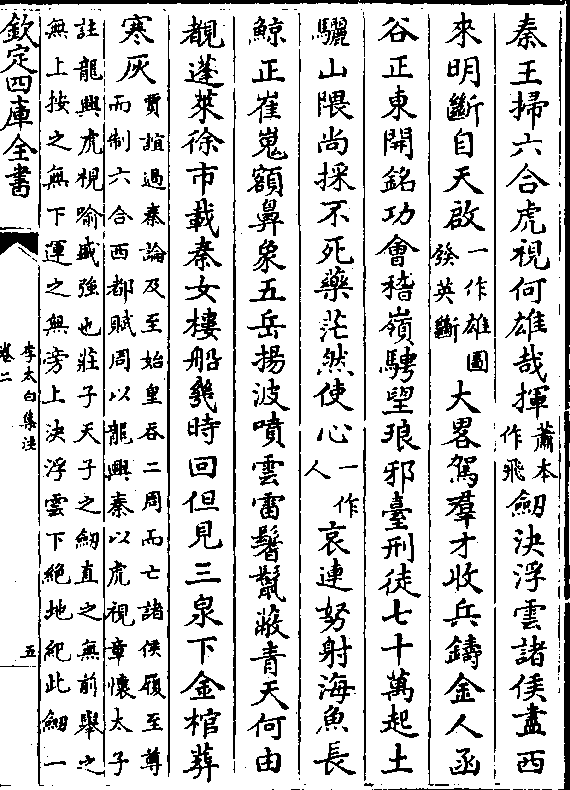 秦王掃六合虎視何雄哉揮蕭本作飛劒決浮雲諸侯盡西
來明斷自天啟一作雄圖發英斷大畧駕羣才收兵鑄金人函
谷正東開銘功會稽嶺騁望琅邪臺刑徒七十萬起土
驪山隈尚採不死藥茫然使心一作人哀連弩射海魚長
鯨正崔嵬額鼻象五岳揚波噴雲雷鬐鬛蔽青天何由
覩蓬萊徐市載秦女樓船幾時回但見三泉下金棺葬
寒灰賈誼過秦論及至始皇吞二周而亡諸侯履至尊
而制六合西都賦周以龍興秦以虎視章懷太子
註龍興虎視喻盛強也莊子天子之劒直之無前舉之
無上按之無下運之無旁上決浮雲下絶地紀此劒一
欽定四庫全書
李太白集注
卷二
五